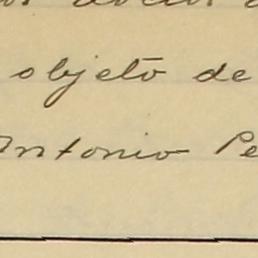 objeto de
Antonio Pe